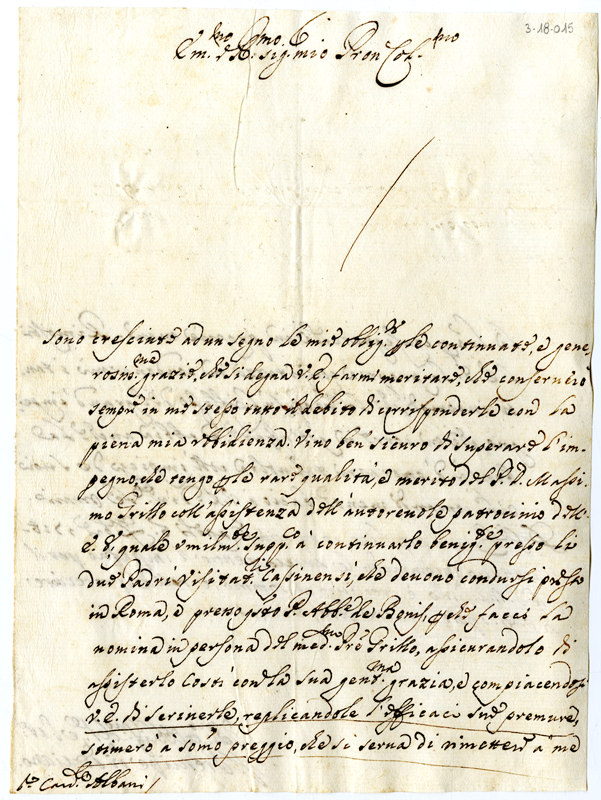 3-18-015
Em.mo e R.mo Sig. mio Pron Col.mo
Sono cresciute ad un segno le mie oblig.ni p le continuate, e gene
rosis.me grazie, che si degna V. E. farmi meritare, che conserverò
sempre in me stesso tutto il debito di corrisponderle con la
piena mia ubbidienza. Vivo ben sicuro di superare l'im-
pegno, che tengo p le rare qualità, e merito del P. D. Massi-
mo Grillo coll'assistenza dell'autorevole patrocinio dell'
E. V., quale umilm.te supp.co à continuarlo benig.te presso li
due Padri Visitat.li Cassinensi, che devono condursi presto
in Roma, e presso gsto P. Abb.e de Bonis, p che facci la
nomina in persona del med.mo Pre Grillo, assicurandolo di
assisterlo costì con la sua gent.ma grazia, e compiacendosi
V. E. di scriverle, replicandole l'efficaci sue premure,
stimerò à somo preggio, che si serva di rimetter à me
Card. Albani